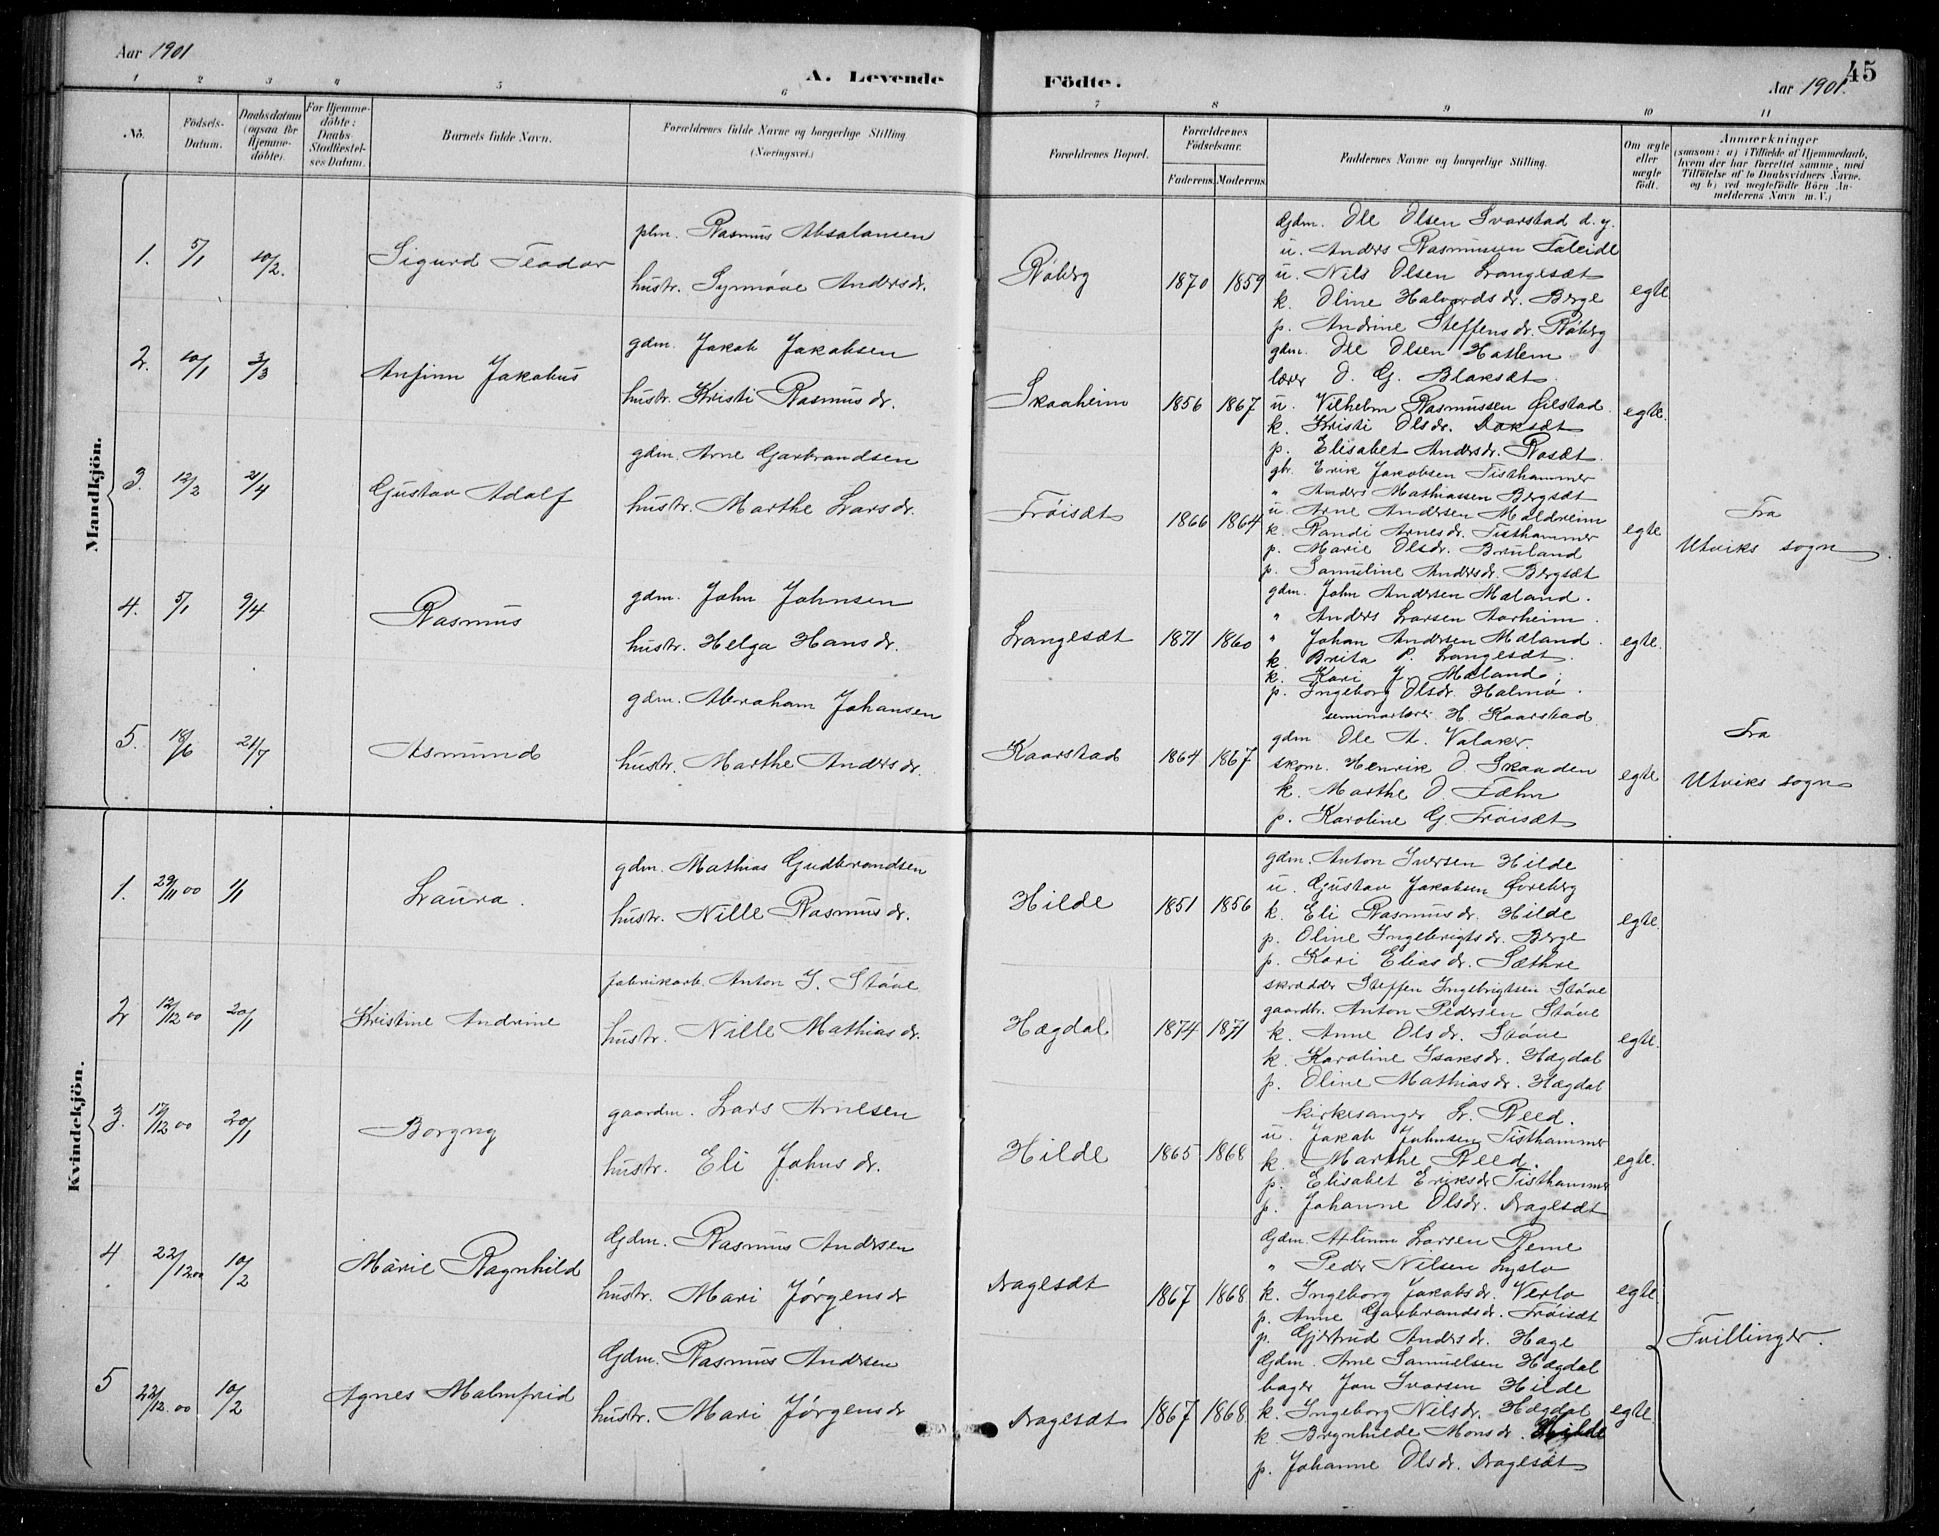 Aar 1901
A. Levende
Födte.
Aar 1901.
45
1 2 3 4 5 6 7 8 9 10 11
No.
Födsels-Datum.
Daabsdatum (ogsaa for Hjemme-döbte).
For Hjemme-döbte: Daabs-Stadfæstel-ses Datum.
Barnets fulde Navn.
Forældrenes fulde Navne og borgerlige Stilling (Næringsvei.)
Forældrenes Bopæl.
Forældrenes Födselsaar.
Faderens. Moderens.
Faddernes Navne og borgerlige Stilling.
Om ægte eller uægte födt.
Anmærkninger
(saasom: a) i Tilfælde af Hjemmedaab, hvem der har forrettet samme, med Tilföielse af to Daabsvidners Navne, og b) ved uægtefödte Börn An-melderens Navn m.V.)
Mandkjön.
1. 5/1 10/2. Sigurd Teodor
plm. Rasmus Absalonsen
hustr. Synnøve Andersdr.
Røberg 1870 1859
Gdm. Ole Olsen Svarstad d. y.
u. Anders Rasmussen Faleide
u. Nils Olsen Langesæt
k. Oline Halvordsdr. Berge
p. Andrine Steffensdr. Røberg
egte
2. 10/1 3/3 Anfinn Jakobus
gdm. Jakob Jakobsen
hustr. Kristi Rasmusdr.
Skaaheim 1856 1867
gdm. Ole Olsen Hatlem
lærer O. G. Blaksæt.
u. Vilhelm Rasmussen Øilstad
k. Kristi Olsdr. Doksæt
p. Elisabet Andersdr. Rosæt.
egte.
3. 12/2 2/4 Gustav Adolf
gdm. Arne Garbrandsen
hustr. Marthe Larsdr.
Frøisæt 1866 1864
gbr. Erik Jakobsen Tisthammer
" Anders Mathiassen Bergsæt
u. Arne Andersen Moldreim
k. Randi Arnesdr. Tisthammer
p. Marie Olsdr. Bruland
p. Samuline Andersdr. Bergsæt
egte
Fra
Utviks sogn.
4. 5/1 9/4 Rasmus
gdm. John Johnsen
hustr. Helga Hansdr.
Langesæt 1871 1860
gdm. John Andersen Mæland.
" Anders Larsen Aarheim.
" Johan Andersen Mæland.
k. Brita P. Langesæt.
k. Kari J. Mæland,
p. Ingeborg Olsdr. Holmø.
egte.
5. 18/6 21/7 Asmund
gdm. Abraham Johansen
hustr. Marthe Andersdr.
Kaarstad 1864 1867
seminarlærer H. Kaarstad.
gdm Ole A. Valaker.
skom. Henrik O. Skaaden
k. Marthe O. Fæhn
p. Karoline G. Frøisæt
egte
Fra
Utviks sogn
Kvindekjön.
1. 29/11 00 1/1 Laura.
gdm. Mathias Gudbrandsen
hustr. Nille Rasmusdr.
Hilde 1851 1856
gdm. Anton Iversen Hilde
u. Gustav Jakobsen Øvreberg
k. Eli Rasmusdr. Hilde
p. Oline Ingebrigtsdr. Berge
p. Kari Eliasdr. Sæthre
egte.
2 12/12 00 20/1 Kristine Andrine
fabrikarb. Anton I. Støve
hustr. Nille Mathiasdr.
Hægdal 1874 1871
skrædder Steffen Ingebrigtsen Støve
gaardbr. Anton Pedersen Støve
k. Anne Olsdr. Støve
k. Karoline Isaksdr. Hægdal
p. Oline Mathiasdr. Hægdal
egte.
3. 17/12 00 20/1 Borgny
gaardm. Lars Arnesen
hustr. Eli Johnsdr.
Hilde 1865 1868
kirkesanger L. Reed.
u. Jakob Johnsen Tisthammer
k. Marthe Reed.
p. Elisabet Eriksdr. Tisthammer
p. Johanne Olsdr. Dragesæt
egte.
4 22/12 00 10/2 Marie Ragnhild
Gdm. Rasmus Andersen
hustr. Mari Jørgensdr
Dragesæt 1867 1868
Gdm. Larsen Reme
" Peder Nilsen Lyslo
k. Ingeborg Jakobsdr. Verlo
p. Anne Garbrandsdr. Frøisæt
p. Gjertrud Andersdr. Hage
egte.
Tvillinger.
5 22/12. 00 10/2 Agnes Malmfrid
Gdm. Rasmus Andersen
hustr. Mari Jørgensdr
Dragesæt 1867 1868
Gdm. Arne Samuelsen Hægdal
bager Jon Ivarsen Hilde
k. Ingeborg Nilsdr. Hægdal
k. Brynhilde Monsdr. Hilde
p. Johanne Olsdr. Dragesæt
egte.